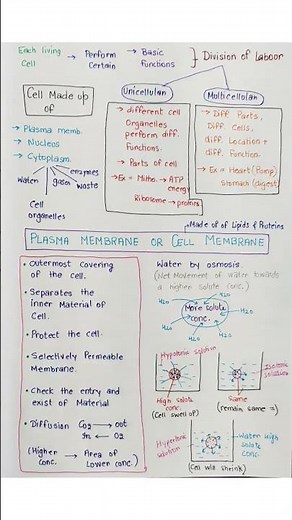 Each living Cell → Perform Certain → Basic Functions } Division of Laboor
Cell Made up of
→ Plasma memb.
→ Nucleus
→ Cytoplasm.
water gases enzymes waste
Cell organelles
Unicellulan
→ different cell
Organelles
perform diff.
Functions.
→ Parts of cell
→ Ex = Mitho. → ATP
energy
Ribosome → protins
Multicellolan
→ Diff Parts,
Diff. Cells,
diff. Location +
diff. Function.
→ Ex = Heart (Pomp)
Stomach (digest)
→ Made of of Lipids & Proteins
PLASMA MEMBRANE OR CELL MEMBRANE
• Outermost covering
of the cell.
• Separates the
inner Material of
Cell.
• Protect the cell.
• Selectively Permeable
Membrane.
• Check the entry and
exist of Material
• Diffusion CO2 → oot
In ← O2
(Higher conc. → Area of Lower conc.)
Water by osmosis.
(Net Movement of water towards
a higher solute conc.)
H2O
H2O
H2O
H2O
H2O
H2O
More solute
conc.
Hypotonic solution
High solute
conc.
(Cell swell up)
Isotonic
solution
Same
(remain same =)
Hypertonic
solution
Water High
solute
conc.
(Cell will shrink)